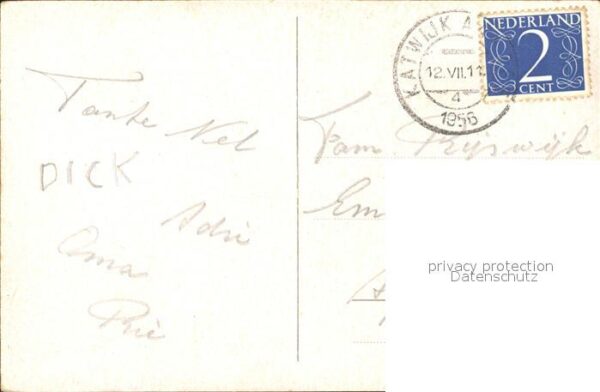 Tante Nel
DICK
Adri
Oma
Rie
KATWIJK A
12.VII.11
4
1956
NEDERLAND
2
CENT
Fam Rijswijk
Em
privacy protection
Datenschutz